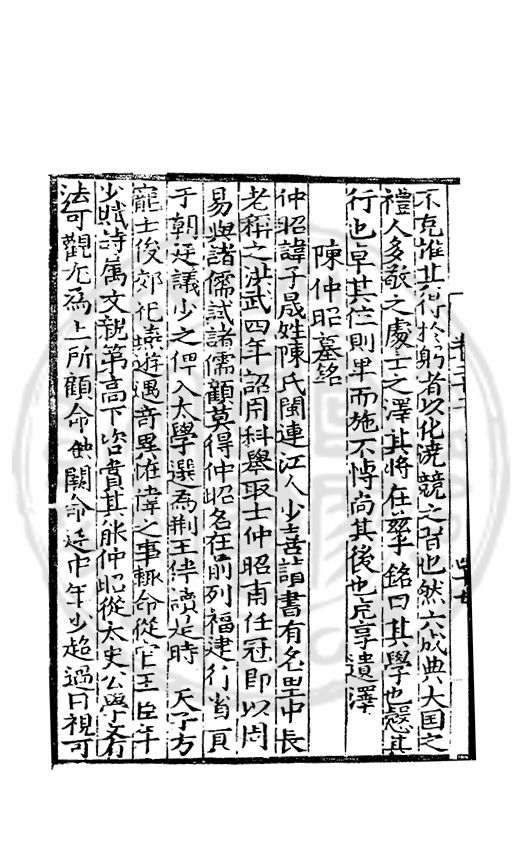 不克推其得於躬者以化澆競之習也然亦成典大国之
禮人多敬之處士之澤其將在孥乎銘曰其學也愨其
行也卓其位則畢而施不悖尚其後也克享遺澤
陳仲昭墓銘
仲昭諱子晟姓陳氏閩連江人少善讀書有名里中長
老稱之洪武四年詔開科舉取士仲昭甫任冠即以周
易與諸儒試諸儒顧莫得仲昭名在前列福建行省貢
于朝廷議少之俾入太學選為荆王伴讀是時 天子方
寵士俊郊化遶遊遇音異惟偉之事輒命從官王臣年
少賦詩属文親第高下咨賞其能仲昭從太史公學文有
法可觀尤為上所顧命闕命廷中年少超過日視可